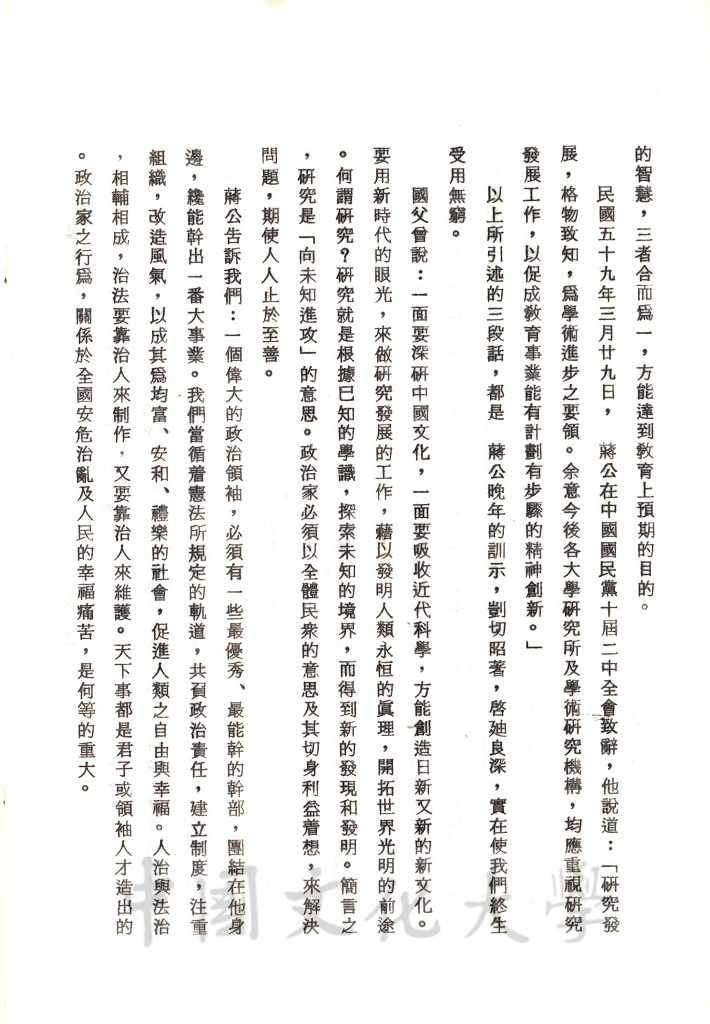 的智慧，三者合而爲一，方能達到教育上預期的目的。
民國五十九年三月廿九日，　蔣公在中國國民黨十屆二中全會致辭，他說道：「研究發
展，格物致知，爲學術進步之要領。余意今後各大學研究所及學術研究機構，均應重視研究
發展工作，以促成教育事業能有計劃有步驟的精神創新。」
以上所引述的三段話，都是　蔣公晚年的訓示，剴切昭著，啓廸良深，實在使我們終生
受用無窮。
國父曾說：一面要深研中國文化，一面要吸收近代科學，方能創造日新又新的新文化。
要用新時代的眼光，來做研究發展的工作，藉以發明人類永恒的眞理，開拓世界光明的前途
。何謂研究？研究就是根據已知的學識，探索未知的境界，而得到新的發現和發明。簡言之
，研究是「向未知進攻」的意思。政治家必須以全體民衆的意思及其切身利益着想，來解決
問題，期使人人止於至善。
蔣公告訴我們：一個偉大的政治領袖，必須有一些最優秀、最能幹的幹部，團結在他身
邊，纔能幹出一番大事業。我們當循着憲法所規定的軌道，共負政治責任，建立制度，注重
組織，改造風氣，以成其爲均富、安和、禮樂的社會，促進人類之自由與幸福。人治與法治
，相輔相成，治法要靠治人來制作，又要靠治人來維護。天下事都是君子或領袖人才造出的
。政治家之行爲，關係於全國安危治亂及人民的幸福痛苦，是何等的重大。
中國文化大學